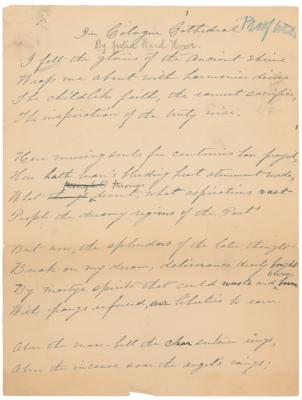 In Cologne Cathedral
By Julia Ward Howe.
I felt the glories of the Ancient Shrine
Wrap me about with harmonies divine
The childlike faith, the earnest sacrifice,
The inspiration of the
Here musing souls for centuries have prayed,
Here hath man's bleeding heart atonement made,
throngs
What devout, what aspirations vast
People the dreamy regions of the Past
But now, the splendors of the later thought
Break on my dream, deliverance dearly bought
By martyr spirits that could waste and burn
With pangs enforced, liberties to earn.
Above the mass-bell the clear sentence rings,
Above the incense soar the angel's wings;